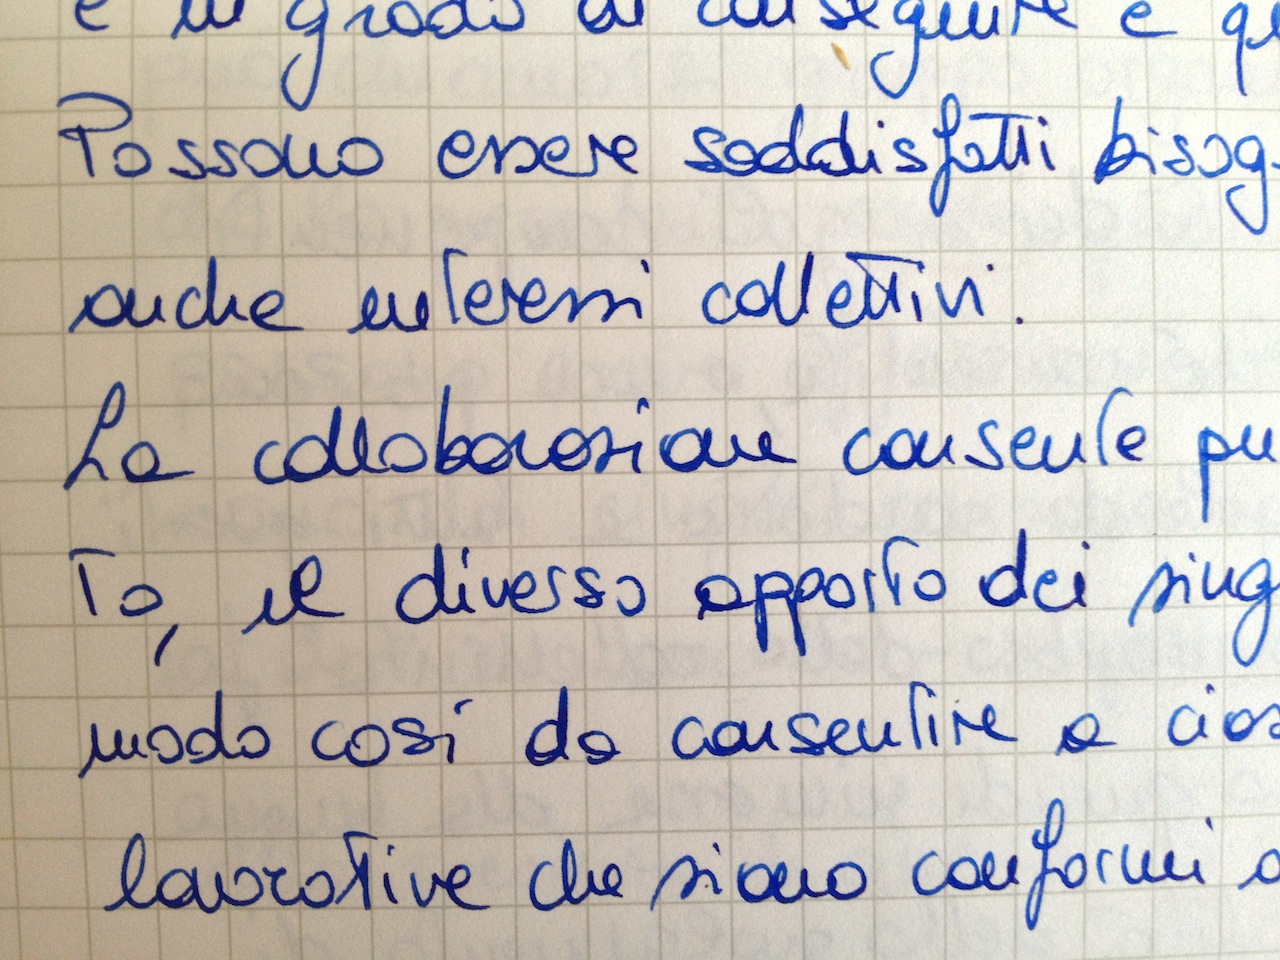 è in grado di conseguire e qu
Possono essere soddisfatti bisog
anche interessi collettivi.
La collaborazione consente pu
to, il diverso apporto dei sing
modo così da consentire a cias
lavorotive che siano conformi a